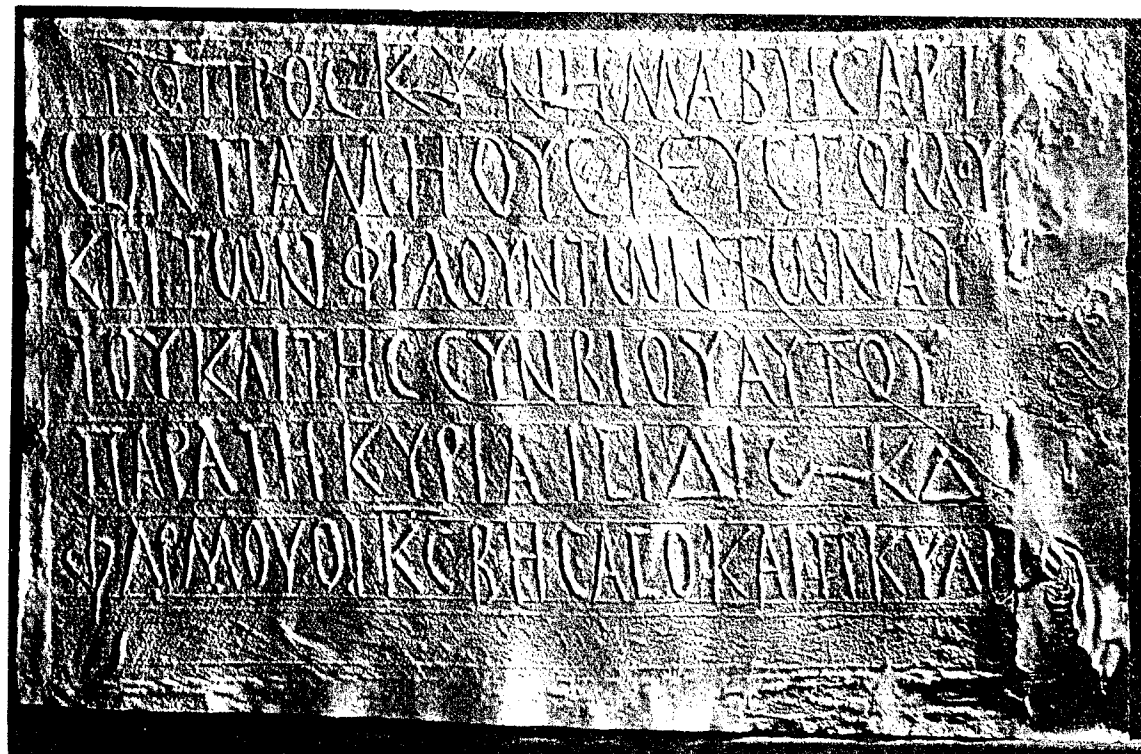 ΤΟ ΠΡΟϹΚΥΝΗΜΑ ΒΗϹΑΡΙ
ΩΝ ΠΑΜΗΟΥϹ
ΚΑΙ ΤΩΝ ΦΙΛΟΥΝΤΩΝ ΤΩΝ ΑΥ
ΤΟΥ ΚΑΙ ΤΗϹ ϹΥΝΒΙΟΥ ΑΥΤΟΥ
ΠΑΡΑ ΤΗ ΚΥΡΙΑ ΙϹΙΔΙ ΚΔ
ΦΑΡΜΟΥΘΙ ΚϚ ΒΗϹΑϹ Ο ΚΑΙ